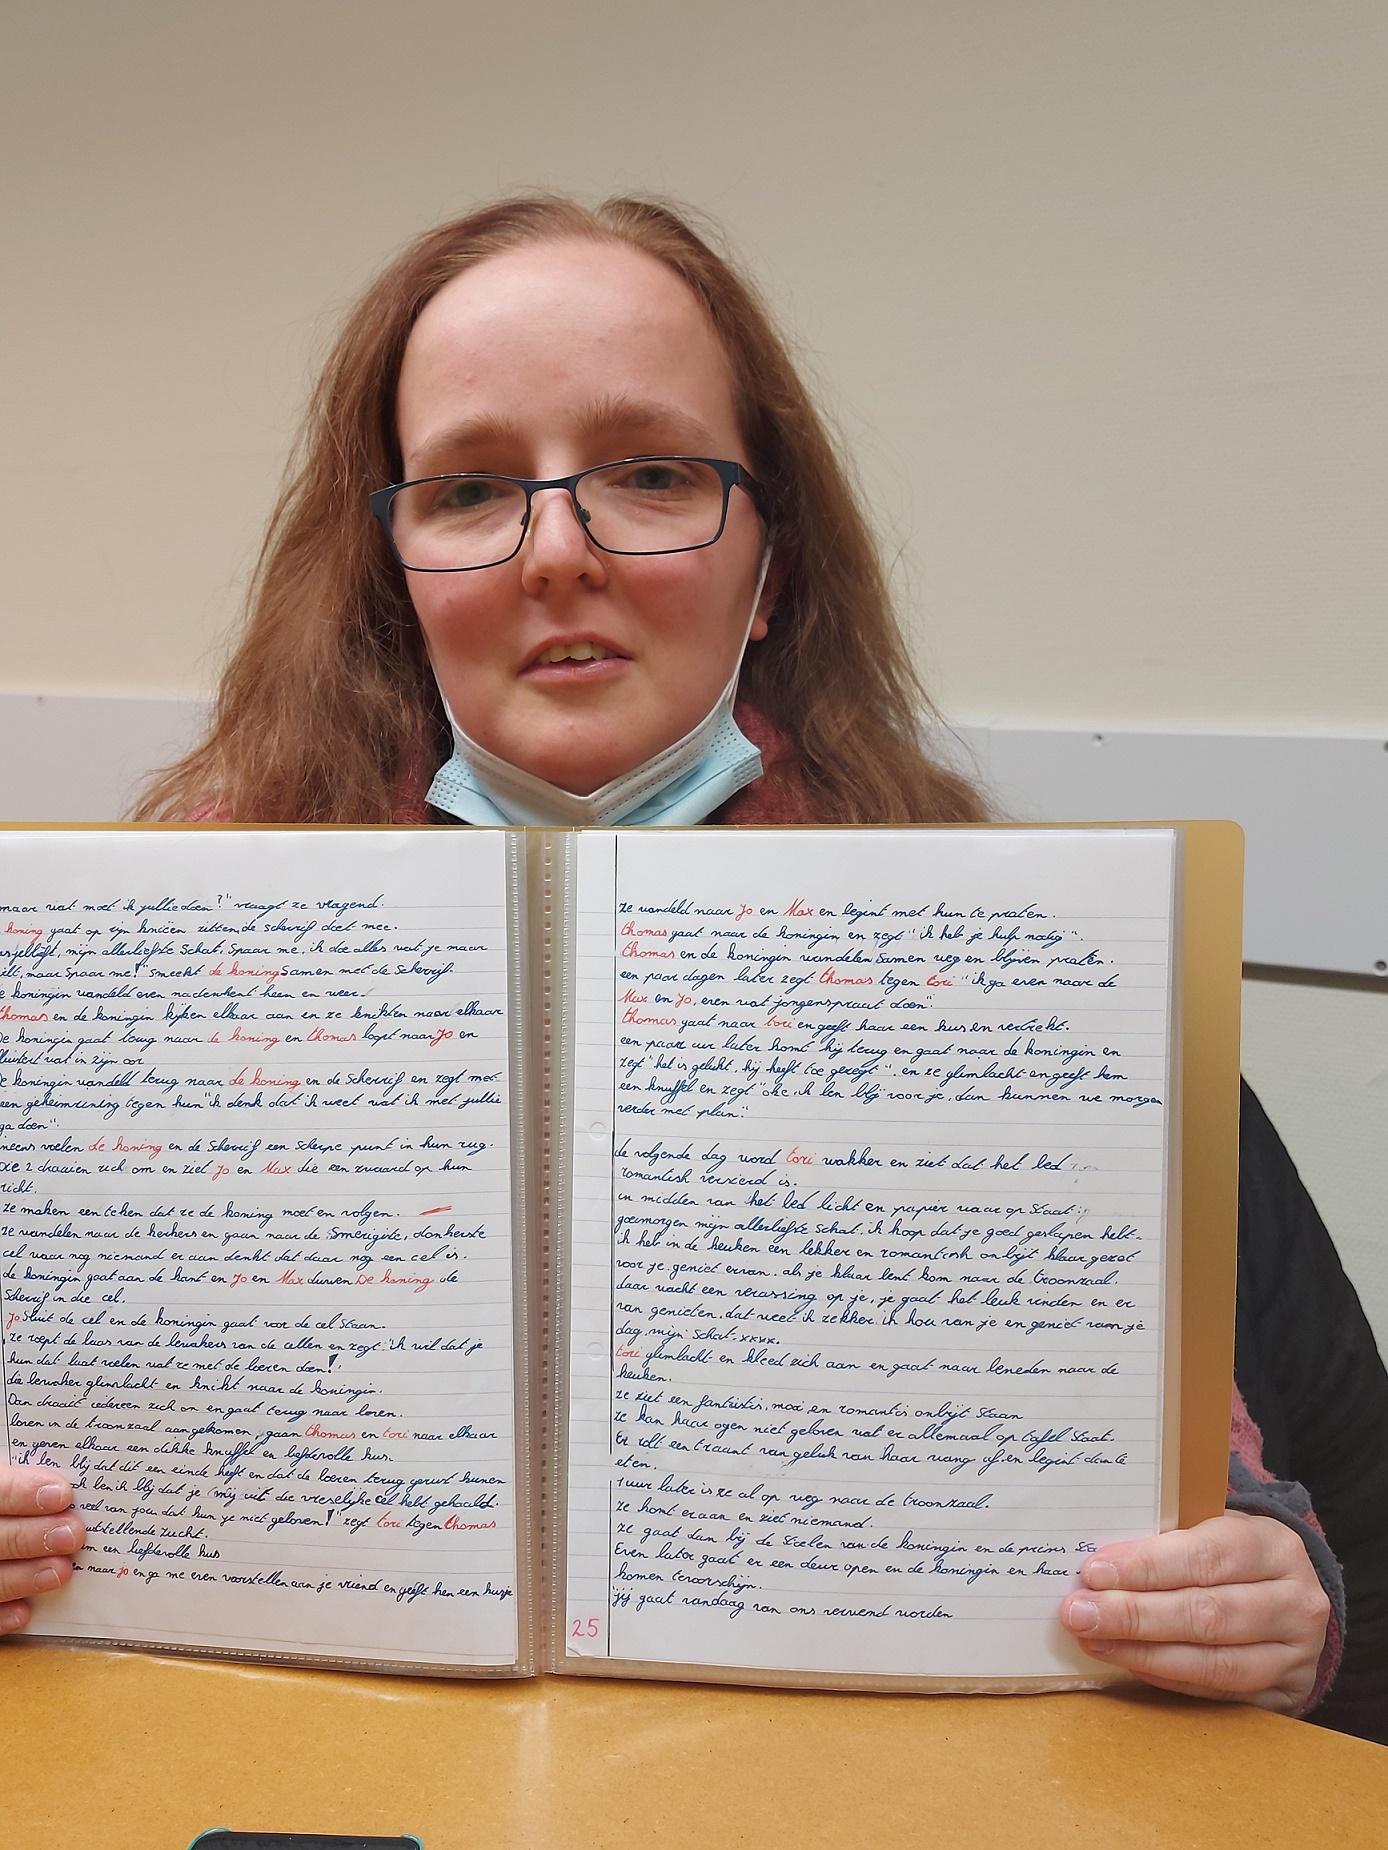 maar wat moet ik jullie doen?" vraagt ze vragend.
koning gaat op zijn knieën zitten, de Scherrif doet mee.
mijn allerliefste Schat, Spaar me, ik doe alles wat je maar
maar Spaar me!" Smeekt de koning Samen met de Scherrif.
koningin wandeld even nadenkent heen en weer.
thomas en de koningin kijken elkaar aan en ze knikten naar elkaar
De koningin gaat terug naar de koning en thomas loopt naar Jo en
fluistert wat in zijn oor
De koningin wandeld terug naar de koning en de Scherrif en zegt met
een geheimzinnig tegen hun "ik denk dat ik weet wat ik met jullie
ga doen".
ineens voelen de koning en de Scherrif een Scherpe punt in hun rug.
2 draaien zich om en ziet Jo en Max die een zwaard op hun
richt.
ze maken een teken dat ze de koning moet en volgen.
ze wandelen naar de kerkers en gaan naar de Smerigste, donkerste
cel waar nog niemand er aan denkt dat daar nog een cel is.
de koningin gaat aan de kant en Jo en Max duwen De koning de
Scherrif in die cel.
Jo Sluit de cel en de koningin gaat voor de cel Staan.
ze roept de baas van de bewakers van de cellen en zegt "ik wil dat je
hun dat laat voelen wat ze met de boeren doen!"
die bewaker glimlacht en knikt naar de koningin.
Dan draait iedereen zich om en gaat terug naar boven.
boven in de troonzaal aangekomen, gaan thomas en tori naar elkaar
en geven elkaar een dikke knuffel en liefdevolle kus.
"ik ben blij dat dit een einde heeft en dat de boeren terug gerust kunen
ook ben ik blij dat je mij uit die vreselijke cel hebt gehaald.
veel van jou dat kun je niet geloven!" zegt tori tegen thomas
zucht.
een liefdevolle kus
naar Jo en ga me even voorstellen aan je vriend en geeft hen een kusje
ze wandeld naar Jo en Max en begint met hun te praten.
thomas gaat naar de koningin en zegt "ik heb je hulp nodig".
thomas en de koningin wandelen Samen weg en blijven praten.
een paar dagen later zegt thomas tegen tori "ik ga even naar de
Max en Jo, even wat jongenspraat doen".
thomas gaat naar tori en geeft haar een kus en vertrekt.
een paar uur later komt hij terug en gaat naar de koningin en
zegt "het is gelukt, hij heeft toe gezegt". en ze glimlacht en geeft hem
een knuffel en zegt "oke, ik ben blij voor je, dan kunnen we morgen
verder met plan".
de volgende dag word tori wakker en ziet dat het bed
romantish versierd is.
in midden van het bed licht en papier waar op Staat:
goemorgen mijn allerliefste Schat. ik hoop dat je goed geslapen hebt.
ik heb in de keuken een lekker en romantish onbijt klaar gezet
voor je. geniet ervan. als je klaar bent kom naar de troonzaal.
daar wacht een verassing op je, je gaat het leuk vinden en er
van genieten, dat weet ik zekker. ik hou van je en geniet van je
dag, mijn Schat. xxxx.
tori glimlacht en kleed zich aan en gaat naar beneden naar de
keuken.
ze ziet een fantastis, mooi en romantis onbijt Staan
ze kan haar ogen niet geloven wat er allemaal op tafel Staat.
Er rolt een traant van geluk van haar wang af en begint dan te
eten.
1 uur later is ze al op weg naar de troonzaal.
ze komt er aan en ziet niemand.
ze gaat dan bij de Stoelen van de koningin en de prins
Even later gaat er een deur open en de koningin en haar
komen tevoorschijn.
"jij gaat vandaag van ons verwend worden
25